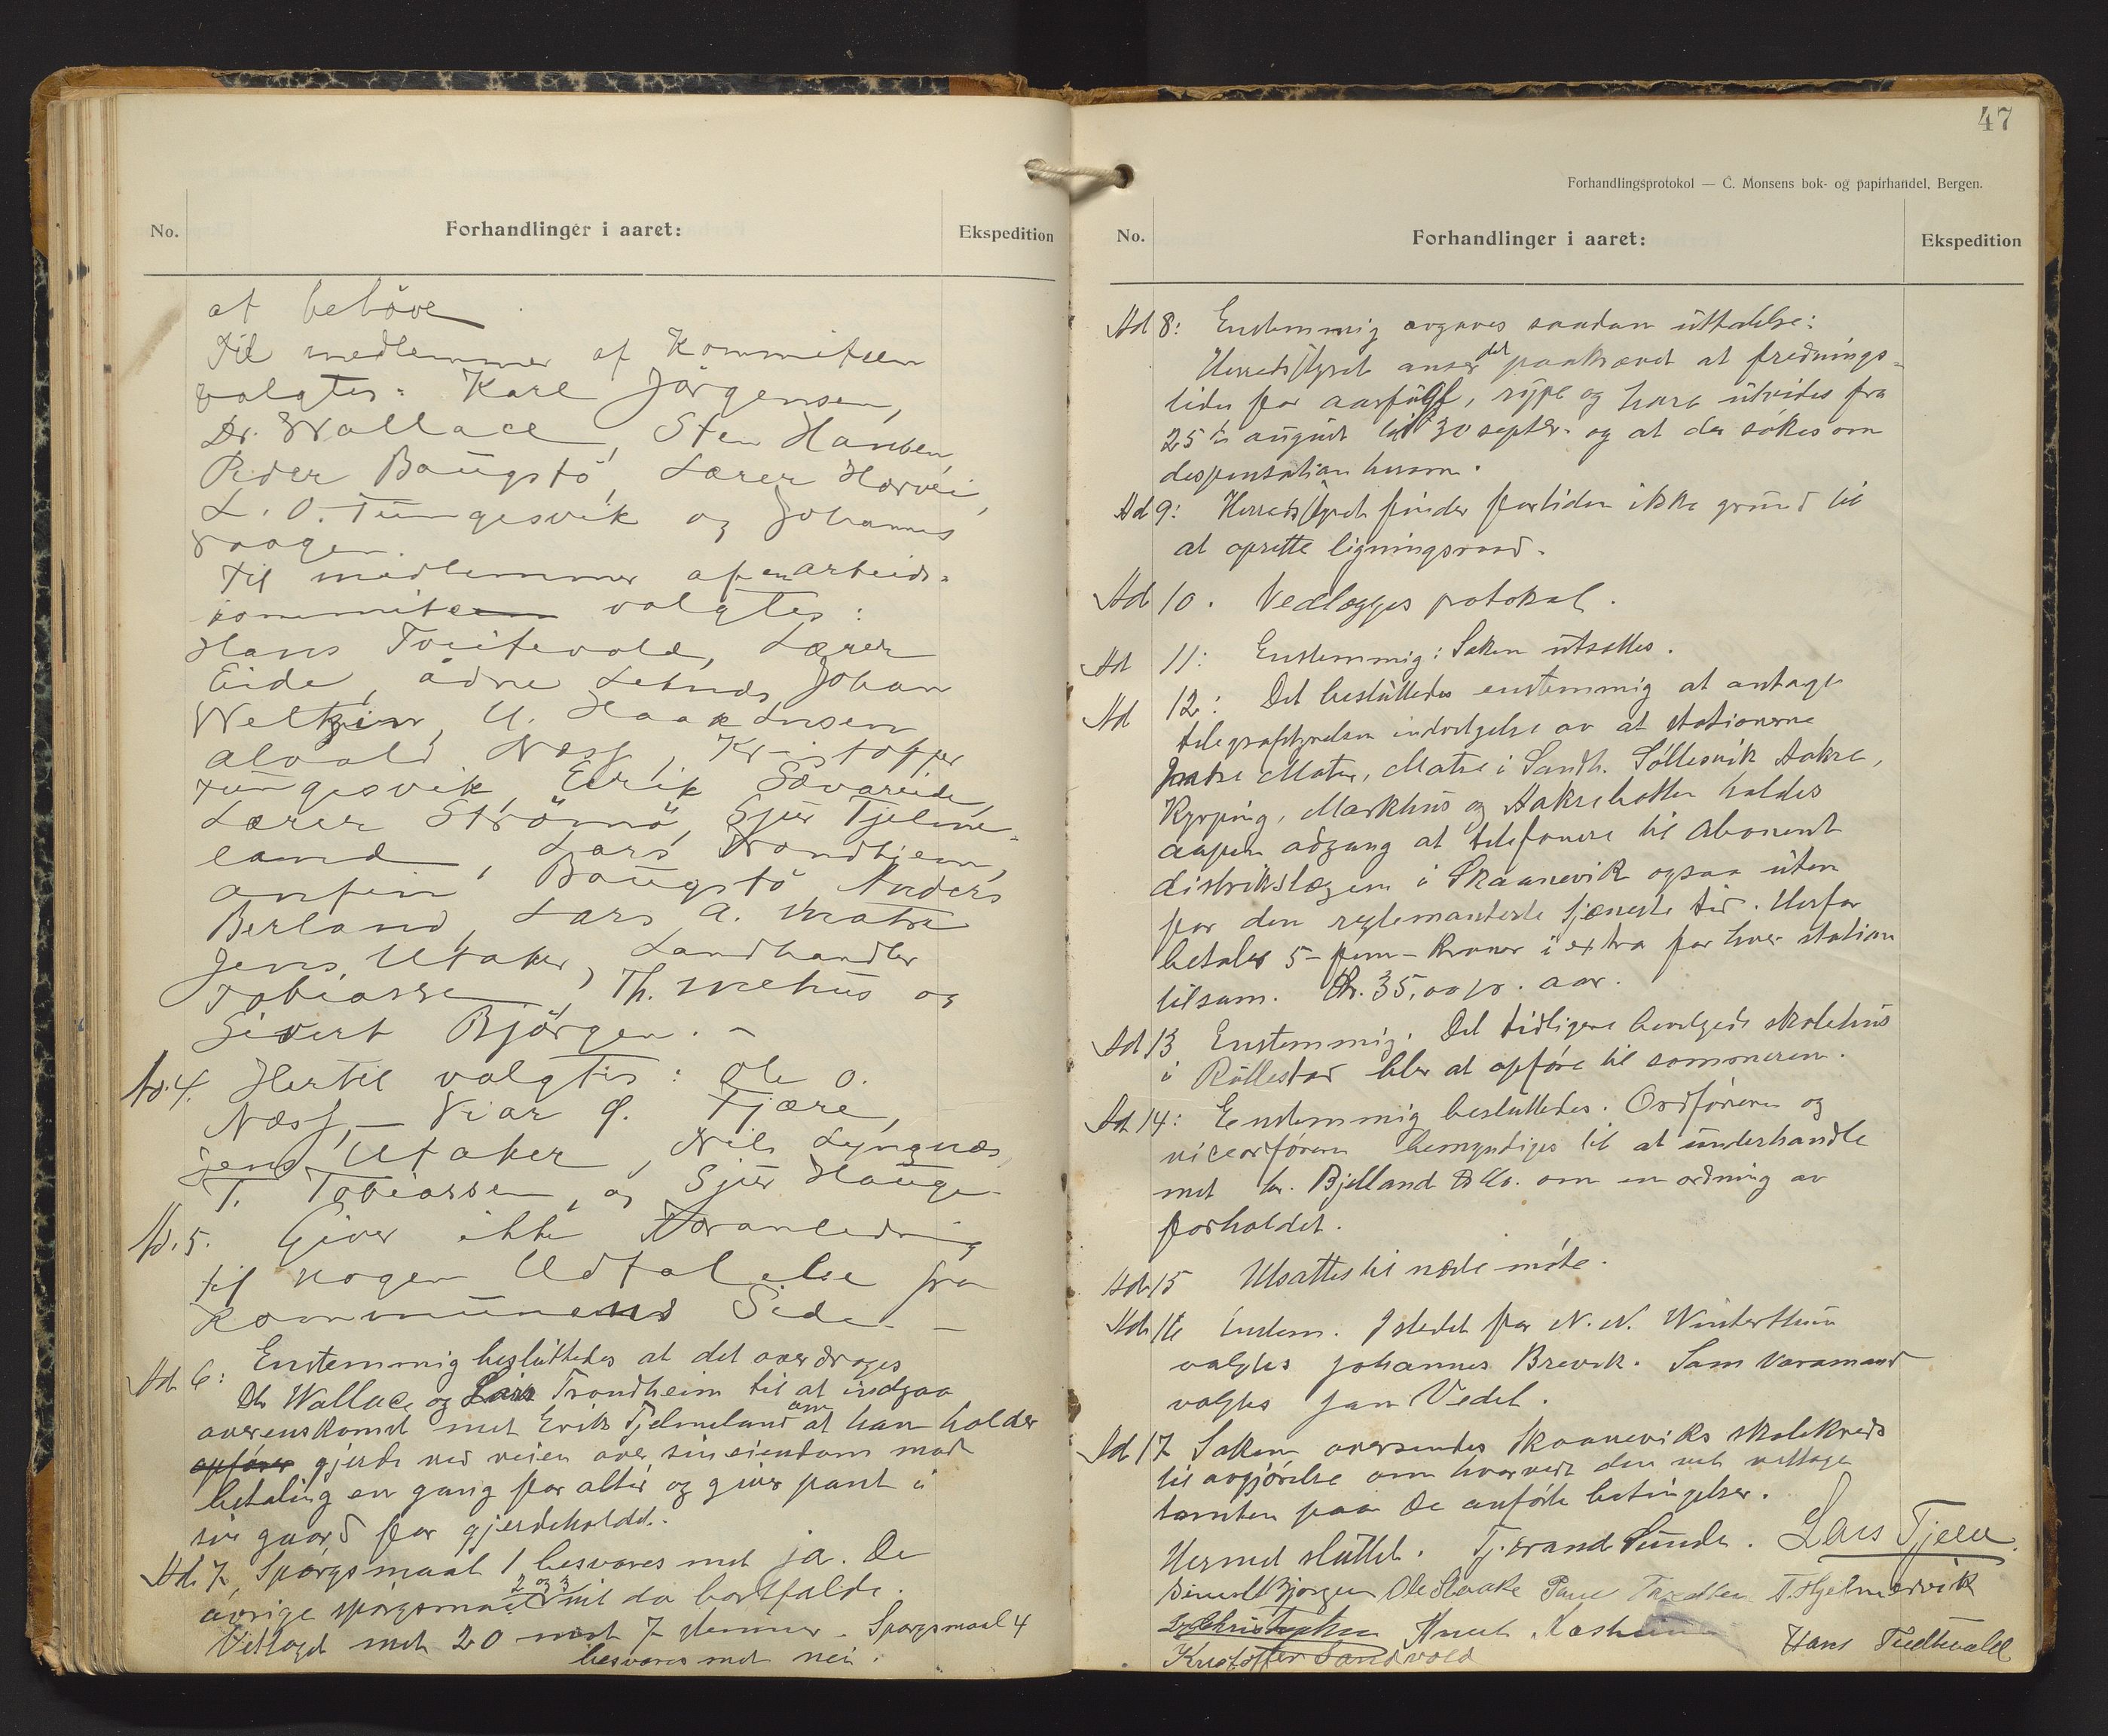 No.
Forhandlinger i aaret:
Ekspedition
at behöve
Til medlemmer af Kommiteen
valgtes: Karl Jörgensen,
Dr. Wallace, Sten Hansen,
Peder Baugstö, Lærer Horvei,
L. O. Tungesvik og Johannes
Vaagen.
Til medlemmer af en arbeids-
kommite valgtes:
Hans Tveitevold, Lærer
Eide, ådne Johan
Weltzin, U. Haakensen
alvald Næss, Kristoffer
Tungesvik, Eirik Sævareide,
Lærer Strömö, Sjur Tjelme-
land, Lars Trondhjem,
anfin Baugstö, Anders
Berland, Lars a. Matre
Jens Utaker, Landhandler
Tobiassen, Th. Mehus og
Sivert Björgen. -
Ad. 4. Hertil valgtes: Ole O.
Næss, - Viar O. Fjære,
Jens Utaker, Nils Lyngnæs,
T. Tobiassen, og Sjur Hauge.
Ad. 5. Giver ikke Foranledning
til nogen Udtalelse fra
Kommunens Side. -
Ad 6: Enstemmig besluttedes at det overdrages
Dr Wallace og Lars Trondheim til at indgaa
overenskomst met Erik Tjelmeland om at han holder
opfører gjerde ved veien over sin eiendom mod
betaling en gang for altid og giver pant i
sin gaard for gjerdeholdet.
Ad 7, Spørgsmaal 1 besvares med ja. De
øvrige spørgsmaal 2 og 3 vil da bortfalde.
Vettaget met 20 mot 7 stemmer. Spørgsmaal 4
besvares med nei.
47
Forhandlingsprotokol — C. Monsens bok- og papirhandel, Bergen.
No.
Forhandlinger i aaret:
Ekspedition
Ad 8: Enstemmig avgaves saadan uttalelse:
Herredsstyret anser det paakrævet at frednings-
tiden for aarfugl, rype og hare utvides fra
25de august til 30 septbr. og at der søkes om
despensation herom.
Ad 9: Herredsstyret finder fortiden ikke grund til
at oprette ligningsraad.
Ad 10. Vedlægges protokol.
Ad 11: Enstemmig: Saken utsættes.
Ad 12: Det besluttedes enstemmig at antage
telegrafstyrelsen indvilgelse av at stationerne
Indre Matre, Matre i Søndh. Aakre,
Kyrping, Markhus og Aakrebotten holdes
aapen adgang at telefonere til Abonent
distrikslægen i Skaanevik ogsaa uten
for den reglementerte tjeneste tid. Herfor
betales 5 - fem - kroner i extra for hver station
tilsam. Kr. 35,00 pr. aar.
Ad 13 Enstemmig. Det tidligere bevilgede skolehus
i Rullestad blir at opføre til sommeren.
Ad 14: Enstemmig besluttedes. Ordføreren og
viceordføreren bemyndiges til at underhandle
met hr. Bjelland & Co. om en ordning av
forholdet.
Ad 15 Utsættes til næste møte.
Ad 16 Enstem. Istedet for N. N. Winterthun
valgtes Johannes Brevik. Som Varamand
valgtes Jan Vedel.
Ad 17 Saken oversendes Skaaneviks skolekreds
til avgjørelse om hvorvidt den vil vettage
tomten paa de anførte betingelser.
Hermed sluttet. Tj. Sunde. Lars Fjære.
Sivert Bjørgen Ole Haake T. Hjelmervik
Knut Hans Tveitevold
Kristoffer Sandvold